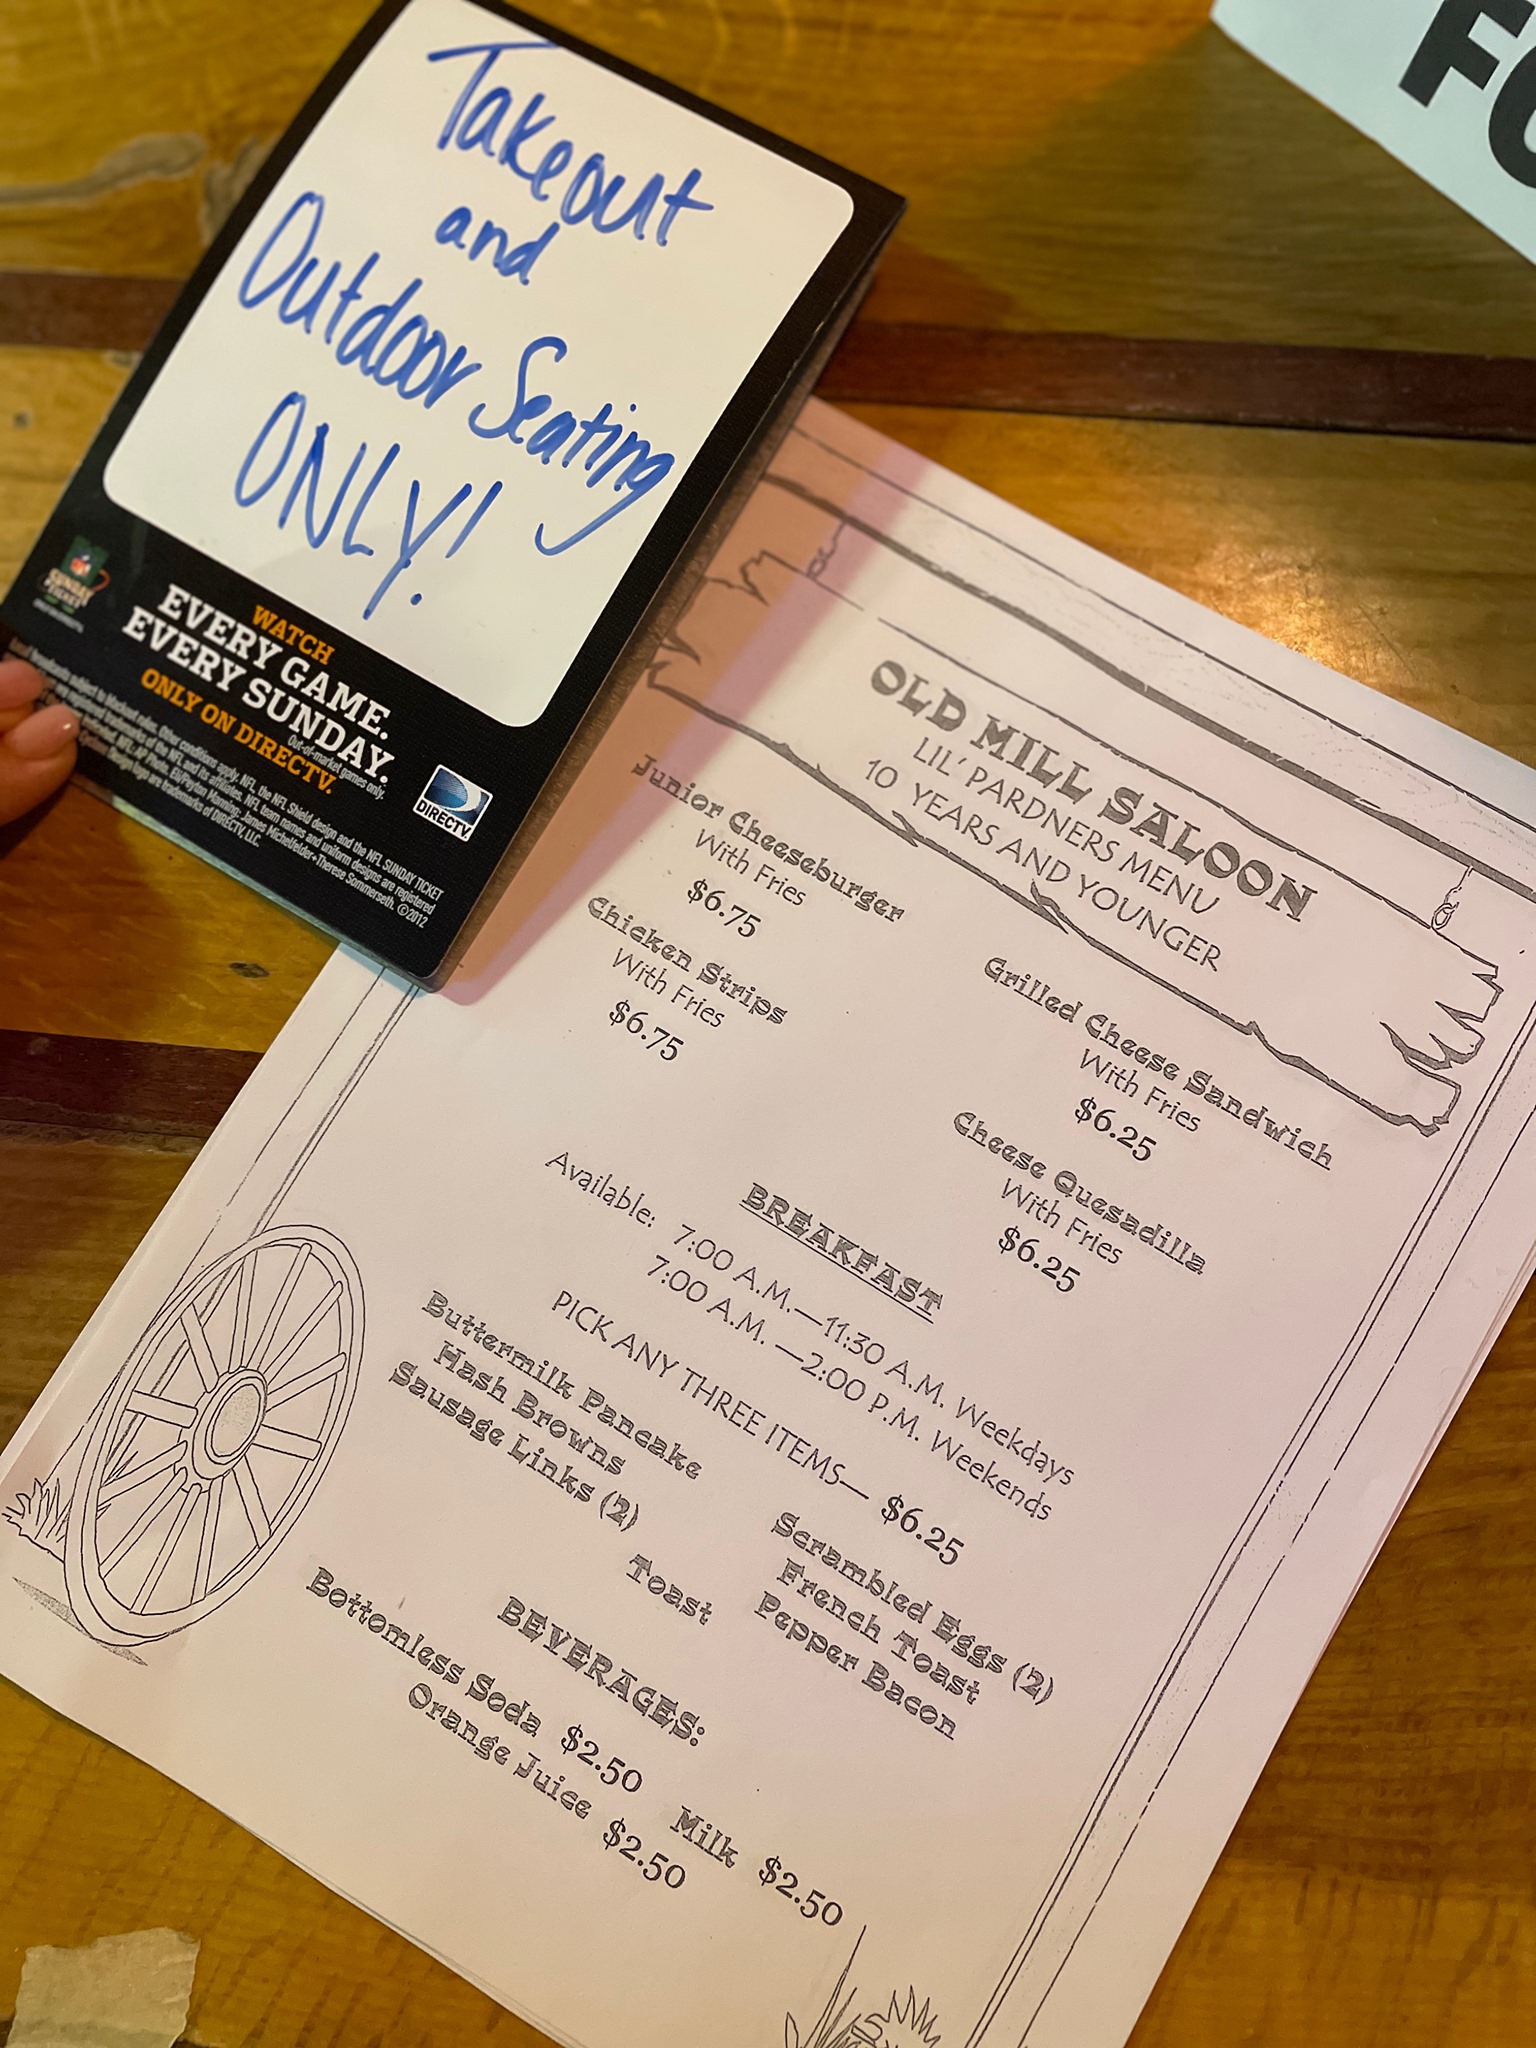 Takeout
and
Outdoor Seating
ONLY!
WATCH
EVERY GAME.
EVERY SUNDAY.
Out-of-market games only.
ONLY ON DIRECTV.
SUNDAY
TICKET
DIRECTV
broadcasts subject to blackout rules. Other conditions apply. NFL, the NFL Shield design and the NFL SUNDAY TICKET
trademarks of the NFL and its affiliates. NFL team names and uniform designs are registered
of DIRECTV, LLC.
©2012
FO
OLD MILL SALOON
LIL' PARDNERS MENU
10 YEARS AND YOUNGER
Junior Cheeseburger
With Fries
$6.75
Chicken Strips
With Fries
$6.75
Grilled Cheese Sandwich
With Fries
$6.25
Cheese Quesadilla
With Fries
$6.25
BREAKFAST
Available: 7:00 A.M.—11:30 A.M. Weekdays
7:00 A.M. —2:00 P.M. Weekends
PICK ANY THREE ITEMS— $6.25
Buttermilk Pancake
Hash Browns
Sausage Links (2)
Scrambled Eggs (2)
French Toast
Pepper Bacon
Toast
BEVERAGES:
Bottomless Soda $2.50
Milk $2.50
Orange Juice $2.50